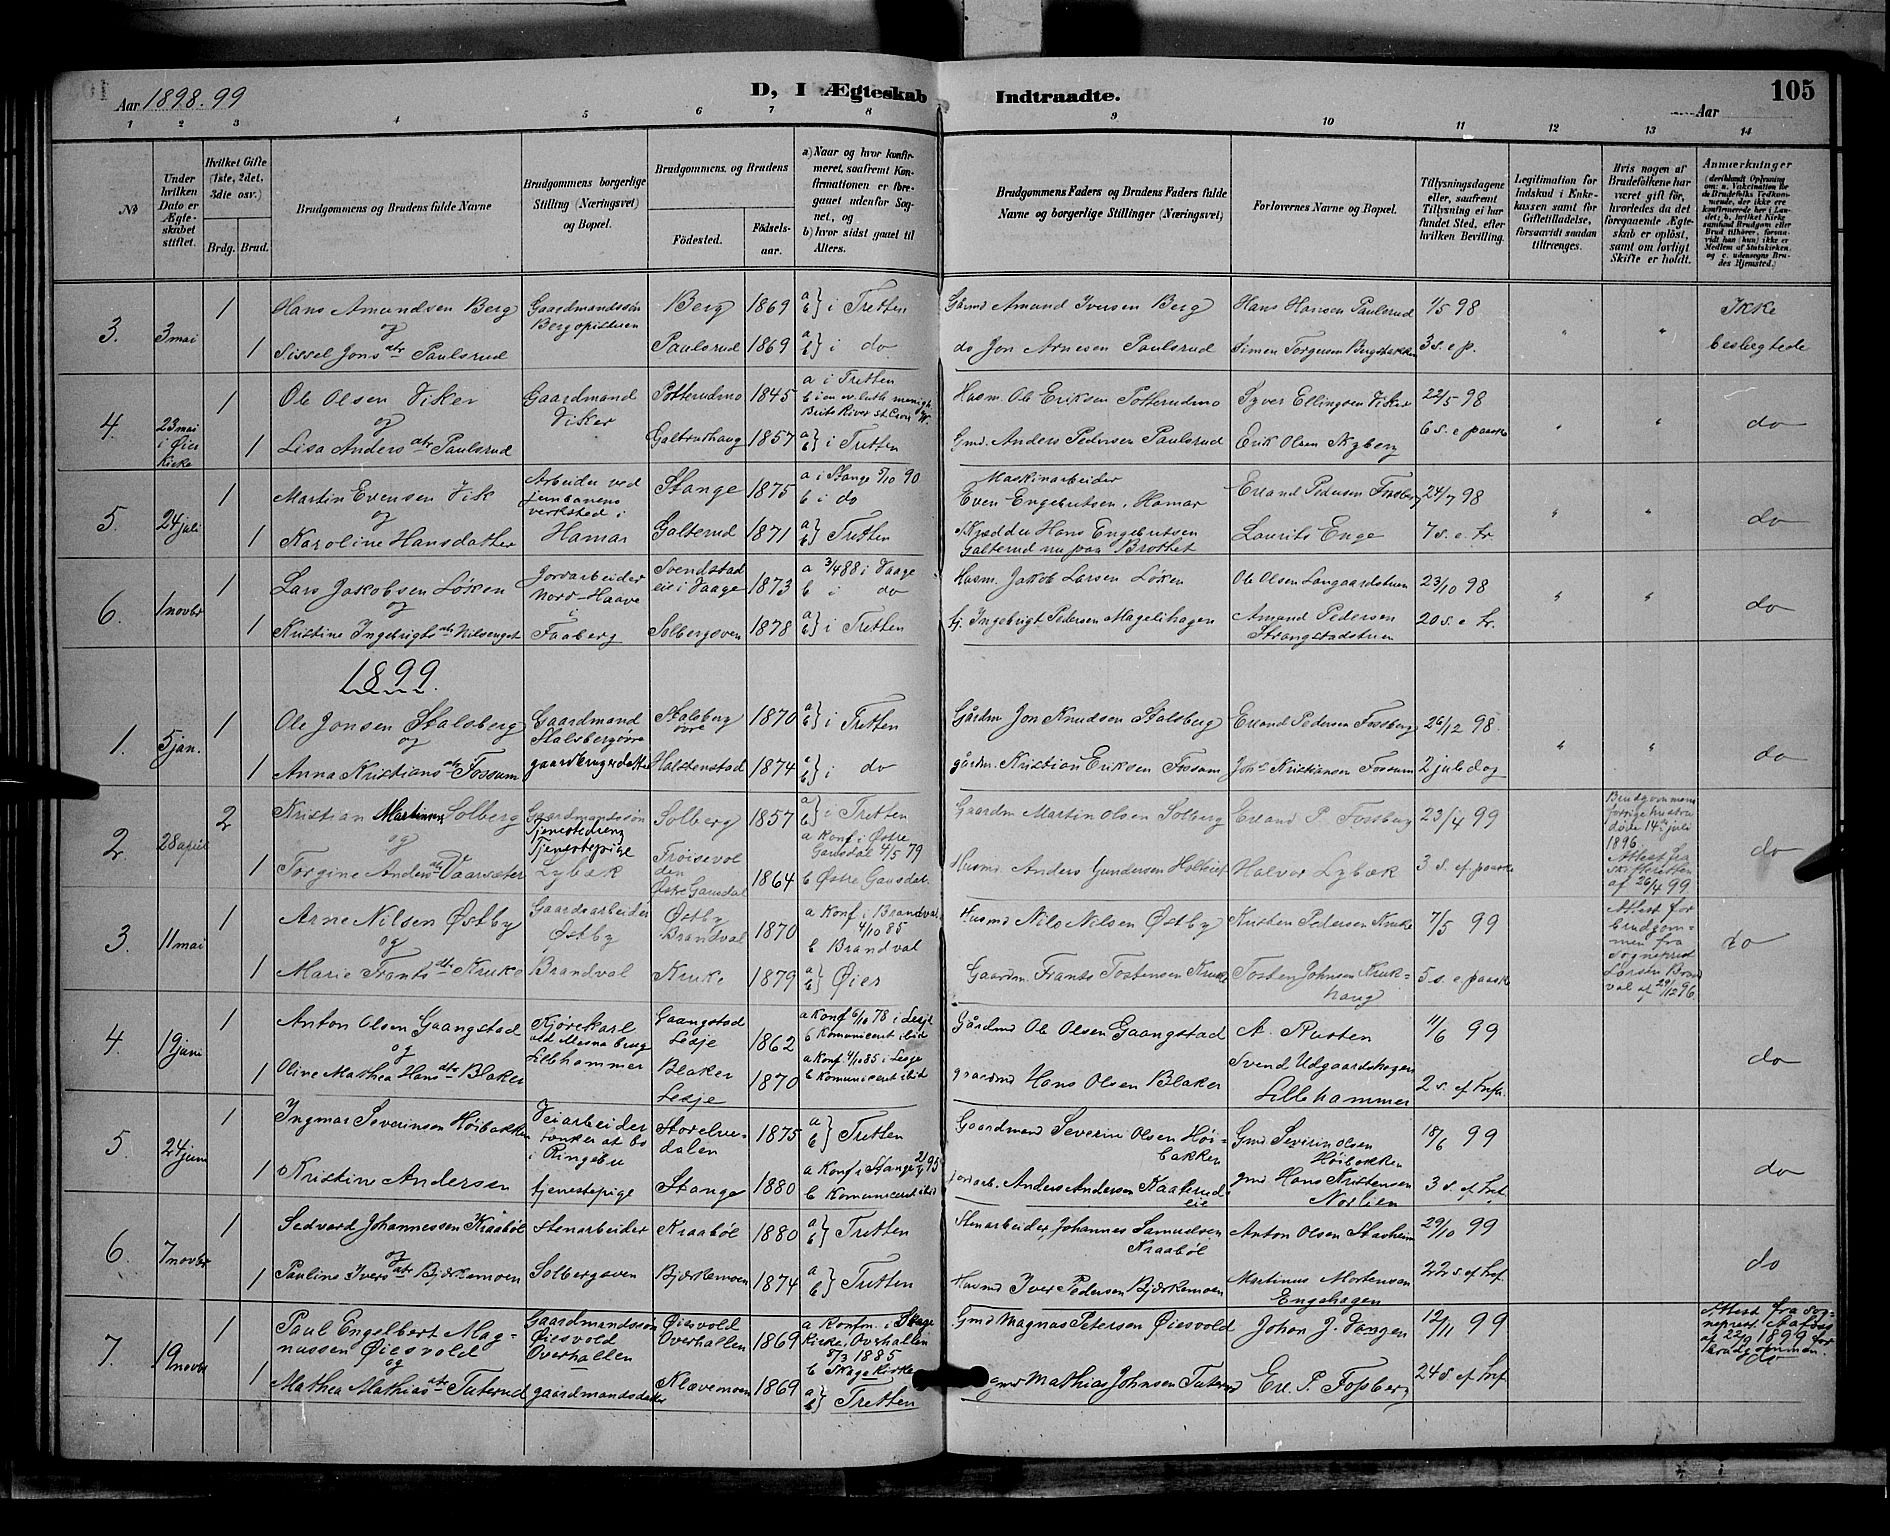 Aar 1898.99
D, I Ægteskab Indtraadte.
Aar
105
1 2 3 4 5 6 7 8 9 10 11 12 13 14
No
Under hvilken Dato er Ægteskabet stiftet.
Hvilket Gifte (1ste, 2det, 3die osv.)
Brdg. Brud.
Brudgommens og Brudens fulde Navne
Brudgommens borgerlige Stilling (Næringsvei) og Bopæl.
Brudgommens og Brudens
Födested.
Födsels-aar.
a) Naar og hvor konfirmeret, saafremt Konfirmationen er foregaaet udenfor Sognet, og
b) hvor sidst gaaet til Alters.
Brudgommens Faders og Brudens Faders fulde Navne og borgerlige Stillinger (Næringsvei)
Forlovernes Navne og Bopæl.
Tillysningsdagene eller, saafremt Tillysning ei har fundet Sted, efter hvilken Bevilling.
Legitimation for Indskud i Enkekassen samt for Giftetilladelse, forsaavidt saadan tiltrænges.
Hvis nogen af Brudefolkene har været gift för, hvorledes da det foregaaende Ægteskab er oplöst, samt om lovligt Skifte er holdt.
Anmærkninger
3. 3 mai 1 Hans Amundsen Berg Gaardmandssön Bergopistuen Berg 1869 a b } i Tretten Gårmd Amund Iversen Berg Hans Hansen Paulsrud 1/5 98 " " Ikke beslegtede
og
1 Sissel Jons dtr Paulsrud Paulsrud 1869 a b } i do do Jon Arnesen Paulsrud Simen Torgersen 3 s. e p.
4. 23 mai i Øier Kirke 1 Ole Olsen Viker Gaardmand Viker Potterudmo 1845 a i Tretten b i en ev. luth. menigh. Husm. Ole Eriksen Potterudmo Syver Ellingsen Viker 22/5 98 " " do
og
1 Lisa Anders dtr Paulsrud Galtrudhaug 1857 a b } i Tretten Gmd. Anders Pedersen Paulsrud Erik Olsen Nyberg 6 s. e paaske
5. 24 juli 1 Martin Evensen Vik Arbeider ved jernbanens verksted i Hamar Stange 1875 a i Stange 5/10 90 b i do Maskinarbeider Even Engebretsen, Hamar Erland Pedersen Fossberg 24/7 98 " " do
og
1 Karoline Hansdatter Galterud 1871 a b } Tretten Skrædder Hans Engebretsen Galterud nu paa Brottet Laurits Enge 7 s. e. tr.
6. 1 novbr 1 Lars Jakobsen Løken Jordarbeider Nord-Haave i Faaberg Svendstad eie i Vaage 1873 a 3/4 88 i Vaage b i do Husm. Jakob Larsen Løken Ole Olsen Langaardstuen 23/10 98 " " do
og
1 Kristine Ingebrigts dtr Nilsenget Solbergsven 1878 a b } i Tretten tj. Ingebrigt Pedersen Magelihagen Amund Pedersen Strangstadstuen 20 s. e tr.
1899.
1. 5 jan. 1 Ole Jonsen Stalsberg Gaardmand Stalsberg övre Stalsberg övre 1870 a b } i Tretten Gårdm Jon Knudsen Stalsberg Erland Pedersen Fossberg 26/12 98. " " do
og
1 Anna Kristians dtr Fossum gaardbrugerdatter Holstenstad 1874 a b } i do gårdm. Kristian Eriksen Fossum Johs Kristiansen Fossum 2 juledag
2. 28 april 2 Kristian Martinsen Solberg Gaardmandssön Tjenestedreng Solberg 1857 a b } i Tretten Gaardm Martin Olsen Solberg Erland P. Fossberg 23/4 99 Brudgommens forrige hustru døde 14de juli 1896. Attest fra Skifteretten af 26/4 99. do
og
1 Torgine Anders dtr Vaarsæter Tjenestepige Lybæk Østre Gausdal 1864 a Konf. i Østre Gausdal 4/5 79 b Østre Gausdal. Husmd Anders Gundersen Halvor Lybæk 3 s. ef paaske
3. 11 mai 1 Arne Nilsen Østby Gaardsarbeider Østby Brandval Østby Brandval 1870 a Konf. i Brandval 4/10 85 b Brandval Husmd Nils Nilsen Østby Kristen Pedersen Kruke 7/5 99 Attest for brudgommen fra Sogneprest Larsen Brandval af 29/12 96. do
og
1 Marie Frants dtr Kruke Kruke 1879 a b } Øier Gaardm. Frants Tostensen Kruke Tosten Johnsen Krukhaug 5 s. e paaske
4. 19 juni 1 Anton Olsen Gaangstad Kjørekarl ved Mesna brug Lillehammer Gaangstad Lesje 1862 a Konf 6/10 78 i Lesje b Komunicent ibid Gårdmd Ole Olsen Gaangstad A. Rusten 11/6 99 do
og
1 Oline Mathea Hans dtr Blaker Blaker Lesje 1870 a Konf. 4/10 85 i Lesje b Komunicent ibid gaardmd Hans Olsen Blaker Svend Udgaardshagen Lillehammer 2 s. ef tref.
5. 24 juni 1 Ingmar Severinsen Høibakken Veiarbeider tænker at bo i Ringebu 1875 a b } Tretten Gaardmand Severin Olsen Høibakken Gmd Severin Olsen Høibakken 18/6 99 do
1 Kristine Andersen tjenestepige Stange 1880 a Konf i Stange b Komunicent ibid jordarb. Anders Andersen Kaaterud eie gmd Hans Kristensen Norlien 3 s. ef tref
6. 7 novbr 1 Sedvard Johannessen Kraabøl Stenarbeider Solbergsven Kraabøl 1880 a b } Tretten Stenarbeider Johannes Samuelsen Kraabøl Anton Olsen 29/10 99 do
og
1 Pauline Ivers dtr Bjerkemoen Bjerkemoen 1874 a b } Tretten Husmd Iver Pedersen Bjerkemoen Martinus Mortensen Engehagen 22 s. ef tref
7. 19 novbr 1 Paul Engelbert Magnussen Øiesvold Gaardmandssön Øiesvold Overhallen Øiesvold Overhallen 1869 a Konfm. i Skage Kirke, Overhallen 8/3 1885 b Skage Kirke Gmd Magnus Petersen Øiesvold Johan J. Vangen 12/11 99 Attest fra Sogneprest Aafos af 22/9 1899 for brudgommen. do
og
1 Mathea Mathias dtr Tuterud gaardmandsdatter Klævemoen 1869 a b } Tretten gmd Mathias Johnsen Tuterud Erl. P. Fossberg 24 s. ef tref